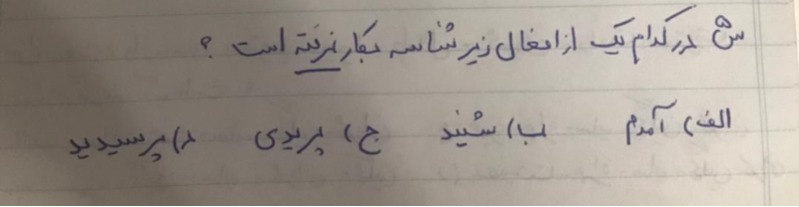 س۵ در کدام یک از افعال زیر شناسه بکار نرفته است ؟
الف) آمدم ب) شنید ج) پریدی د) پرسیدید